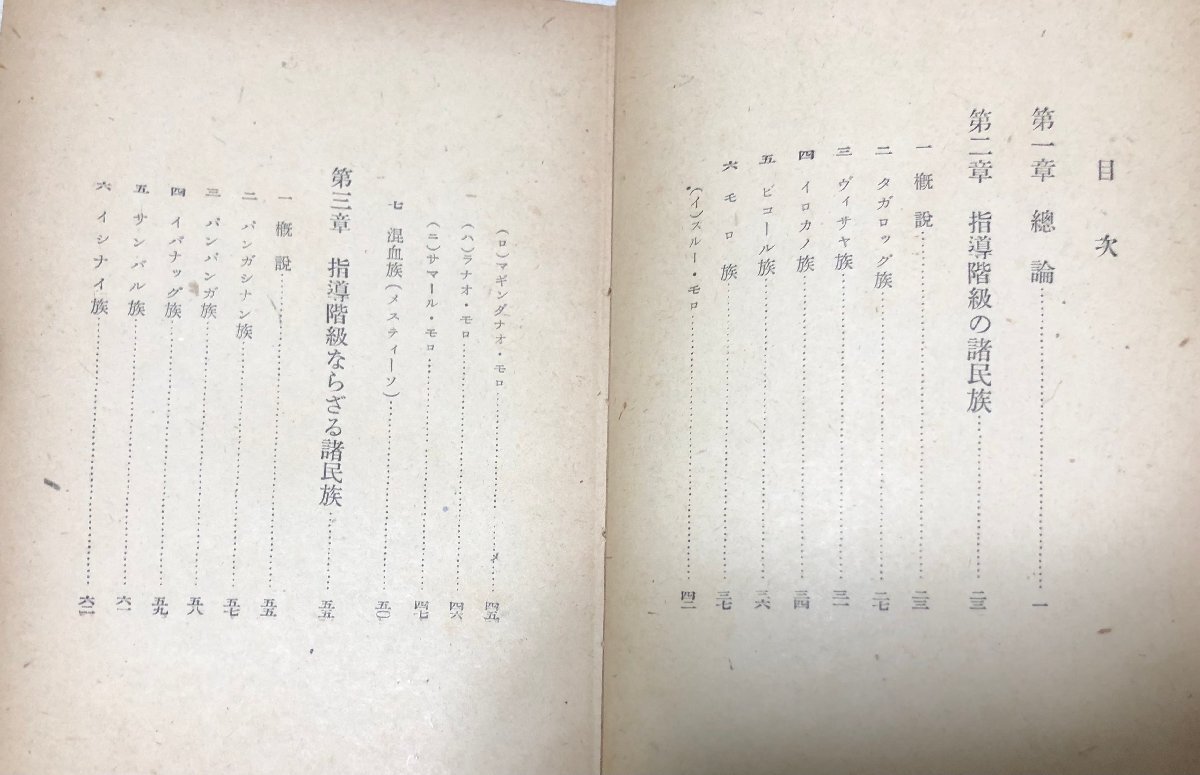 目次
第一章 總論……一
第二章 指導階級の諸民族……二三
一 槪說……二三
二 タガロッグ族……二七
三 ヴィサヤ族……三一
四 イロカノ族……三四
五 ビコール族……三六
六 モロ族……三七
(イ)スルー・モロ……四二
(ロ)マギンダナオ・モロ……四五
(ハ)ラナオ・モロ……四六
(ニ)サマール・モロ……四七
七 混血族(メスティーソ)……五〇
第三章 指導階級ならざる諸民族……五五
一 槪說……五五
二 パンガシナン族……五七
三 パンパンガ族……五八
四 イバナッグ族……五九
五 サンバル族……六一
六 イシナイ族……六二